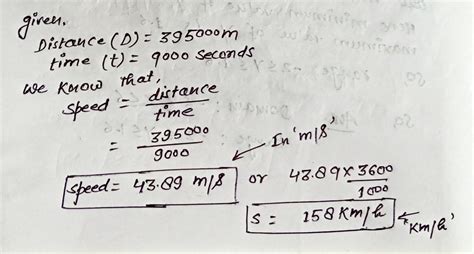 given,
Distance (D) = 395000m
time (t) = 9000 seconds
we know that,
speed = distance
time
= 395000
9000
In 'm/s'
speed = 43.89 m/s or 43.89 × 3600
1000
S = 158 Km/h
'Km/h'